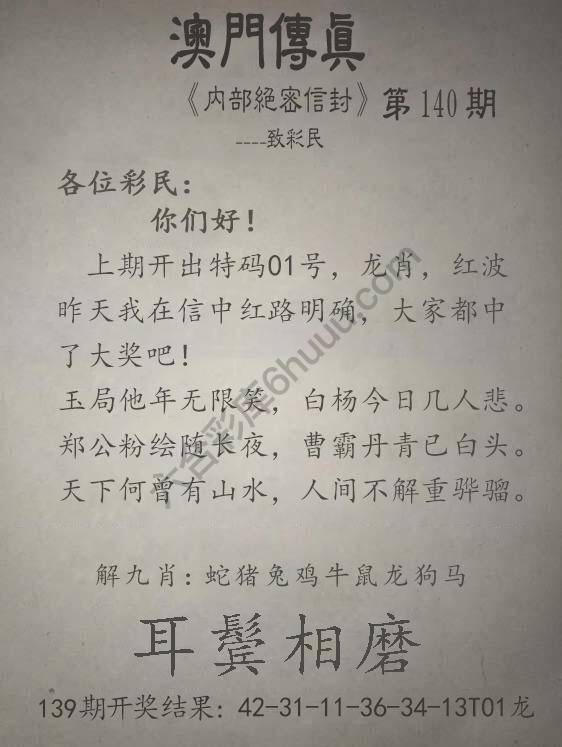 澳門傳眞
《内部絕密信封》第140期
----致彩民
各位彩民：
你们好！
上期开出特码01号，龙肖，红波
昨天我在信中红路明确，大家都中
了大奖吧！
玉局他年无限笑，白杨今日几人悲。
郑公粉绘随长夜，曹霸丹青已白头。
天下何曾有山水，人间不解重骅骝。
解九肖：蛇猪兔鸡牛鼠龙狗马
耳鬓相磨
139期开奖结果：42-31-11-36-34-13T01龙
六合彩库6huuu.com